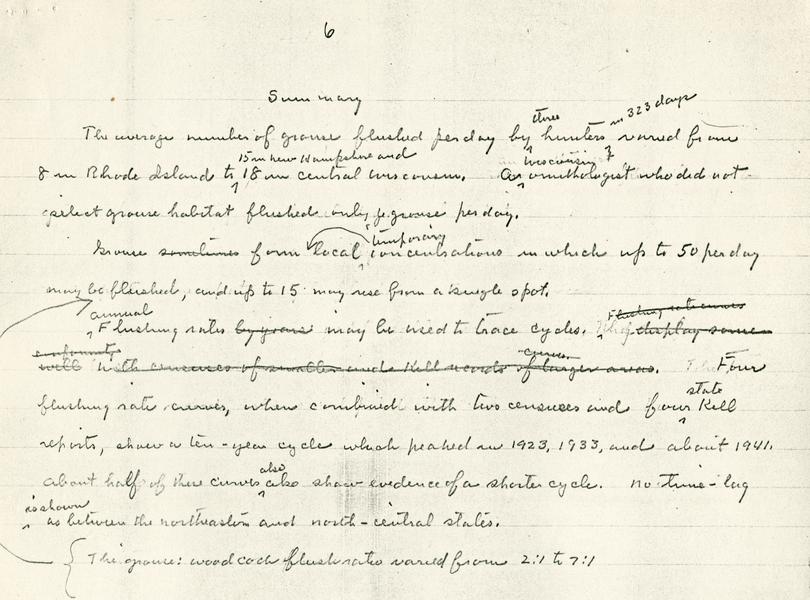 6
Summary
three in 323 days
The average number of grouse flushed per day by hunters varied from
15 in New Hampshire and Wisconsin
8 in Rhode Island to 18 in central Wisconsin. An ornithologist who did not
select grouse habitat flushed only grouse per day.
temporary
Grouse sometimes form local concentrations in which up to 50 per day
may be flushed, and up to 15 may rise from a single spot.
annual Flushing rate curves
Flushing rates by years may be used to trace cycles. They display some
conformity curves
well with censuses of smaller and kill records of larger areas. The Four
state
flushing rate curves, when combined with two censuses and four kill
reports, show a ten-year cycle which peaked in 1923, 1933, and about 1941.
also
About half of these curves also show evidence of a shorter cycle. No time-lag
is shown
as between the northeastern and north-central states.
The grouse: woodcock flush ratio varied from 2:1 to 7:1